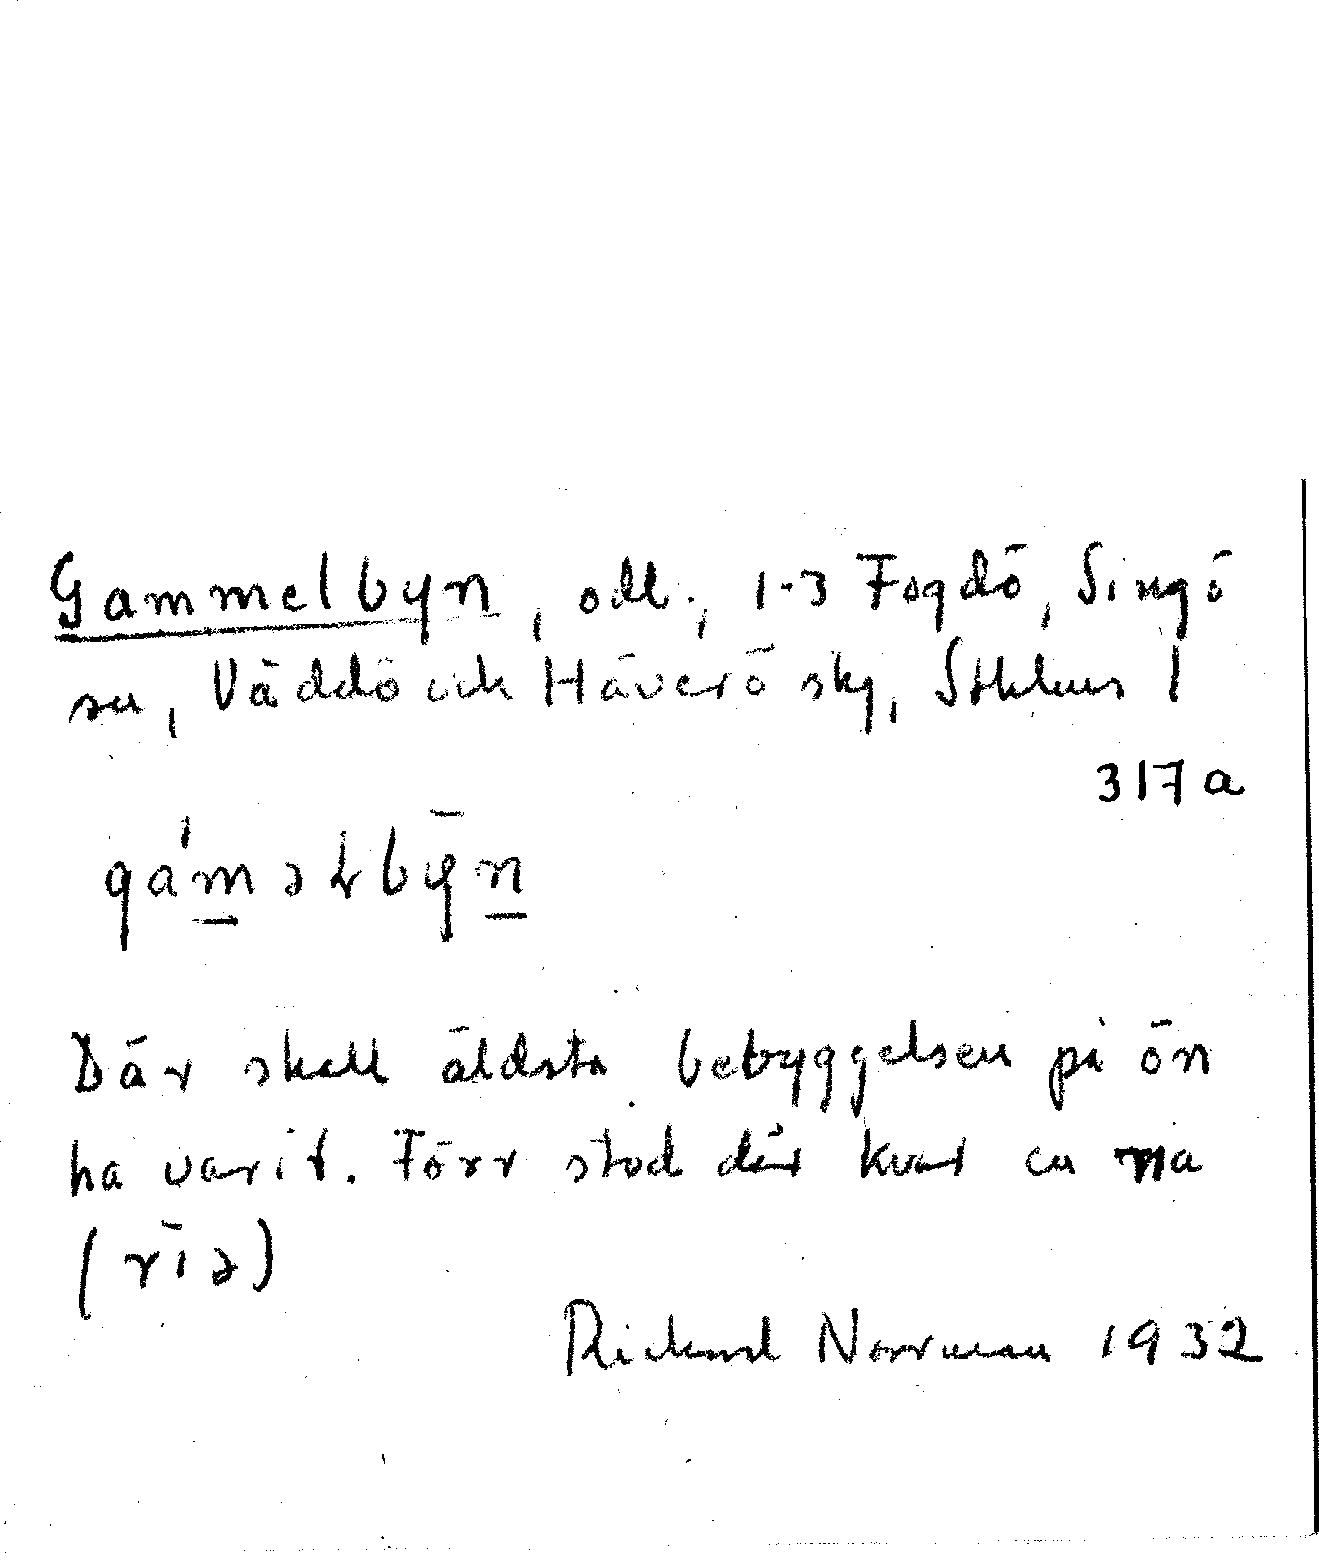 Gammelbyn, odl., 1-3 Fogdö, Singö
sn, Väddö och Häverö skg, Sthlms l
317a
gám̲əłbȳn̲
Där skall äldsta bebyggelsen på ön
ha varit. Förr stod där kvar en ria
(rīə)
Rickard Norrman 1932